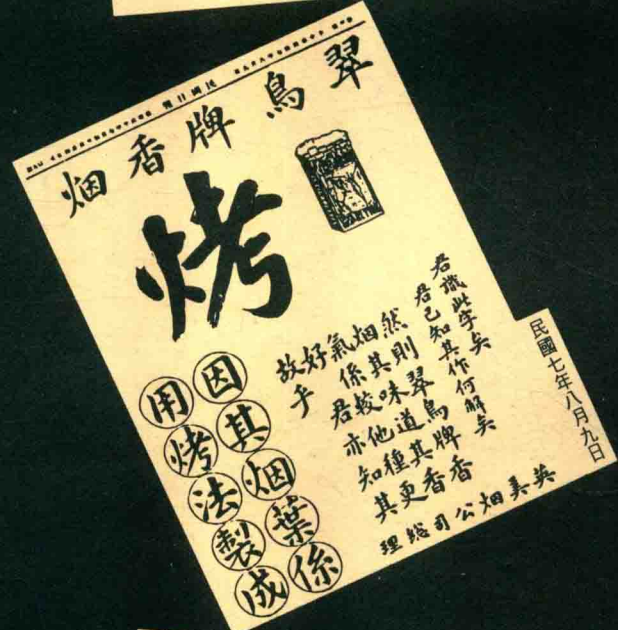 民國日報
翠鳥牌香烟
烤
君識此字矣
君已知其作何解矣
然則翠鳥牌香
烟其味道其香
氣係較他種更
好 君亦知其
故乎
因其烟葉係
用烤法製成
英美烟公司総理
民國七年八月九日